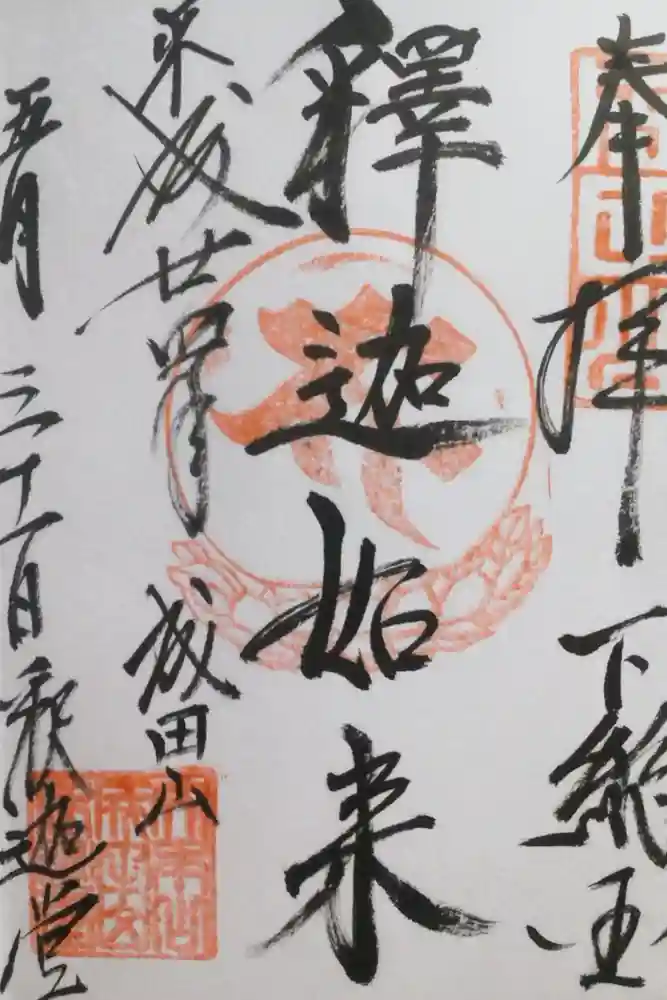 奉拝 下総国
釋迦如来
平成廿四年 成田山
五月三十一日 釈迦堂